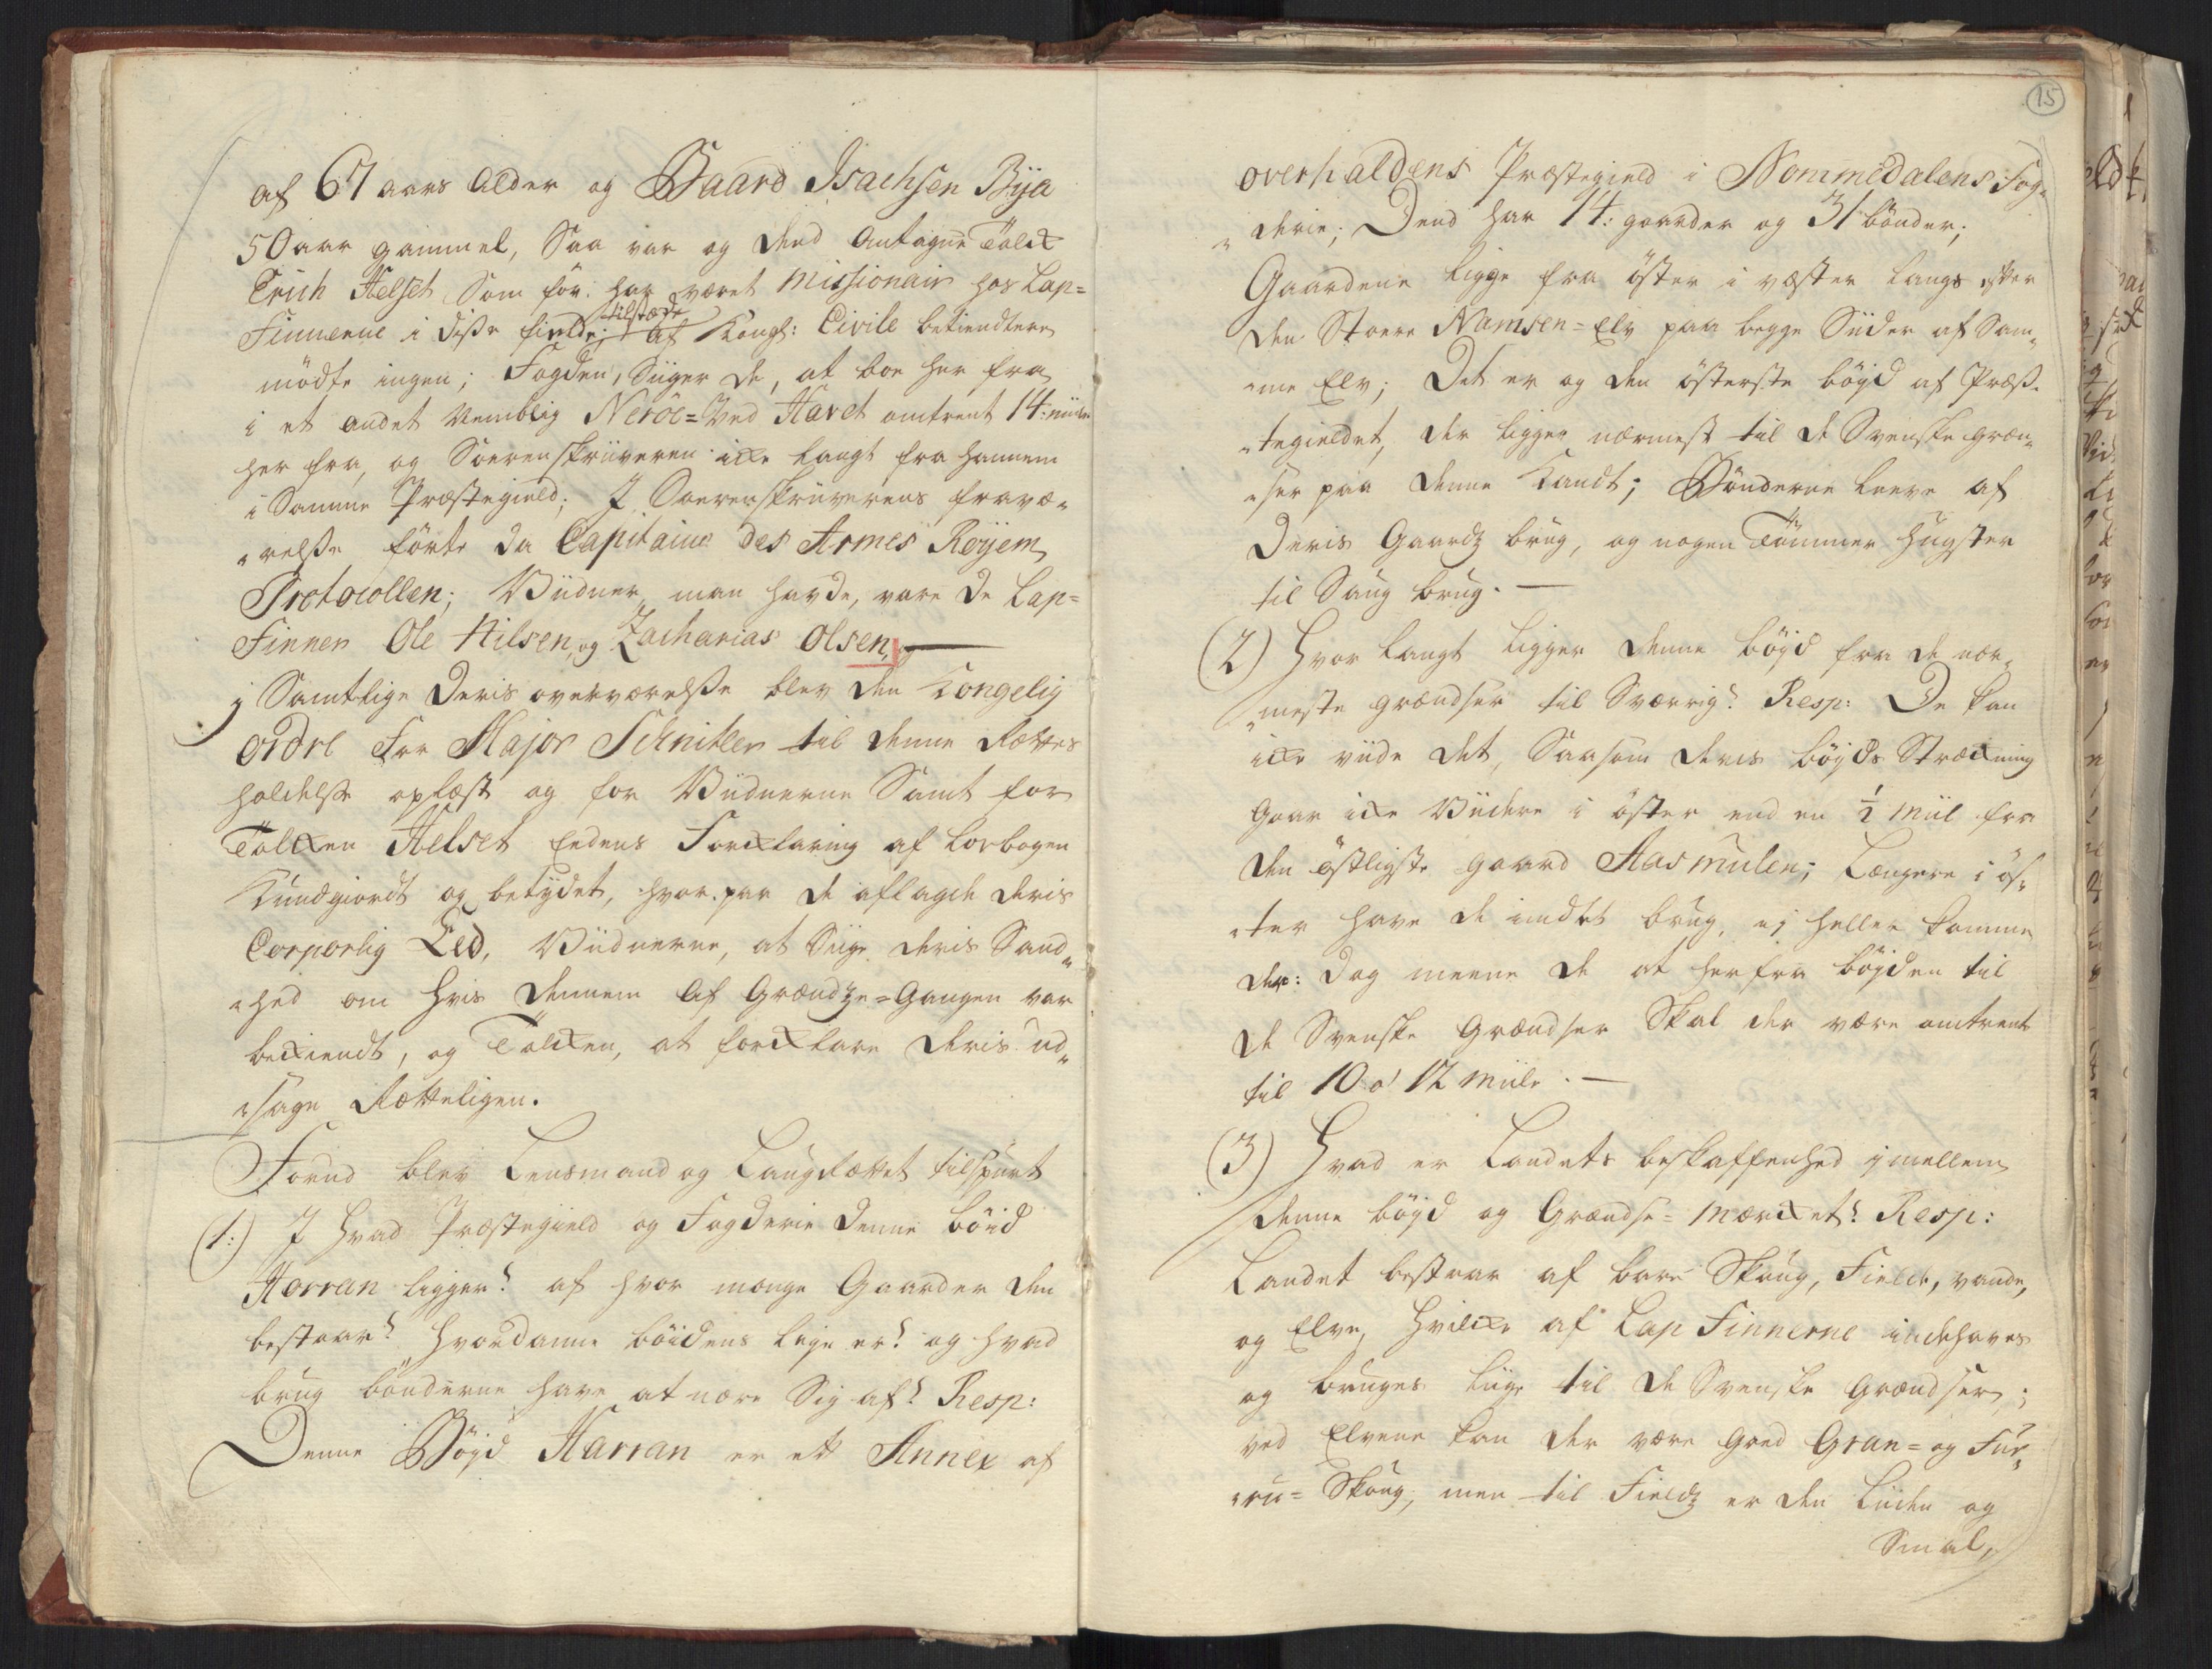 af 67 aars alder og Baard Isachsen Bÿe
50 aar gammel, Saa var og dend Antagne Tolck
Erich Helset, Som för: har været Missionair hos Lap=
Finnerne i diße fielde; tilstæde af Kongl: Civile betiendtere
mödte ingen; Fogden, Siiger de, at boe her fra
i et andet Nemblig Neröe= Ved Havet omtrent 14: miile
her fra, og Sorenskriiveren icke langt fra hannem
i Samme Præstegield; I Sorenskriiverens fravæ„
„relße förte da Capitaine des Armes Röÿem
Protocollen; Viidner, man havde, vare de Lap=
Finner Ole Nilsen, og Zacharias Olsen, —
j Samtlige Deris overværelße blev den Kongelig
Ordre For Major Schnitler til denne Rættes
holdelße oplæst og for Viidnerne Samt for
Tolcken Helset Eedens Forcklaring af Lovbogen
Kundgiordt og betÿdet, hvor paa de aflagde deris
Corporlig Eed, Viidnerne, at Siige deris Sand„
„hed om hvis dennem af Grændze=Gangen var
beckiendt, og Tolcken, at forcklare deris ud„
„sage Rætteligen.
Forud blev Lensmand og Laugrættet tilspurt
(1:) I hvad Præstegield og Fogderie denne böid
Horran ligger? af hvor mange Gaarder den
bestaar? hvordanne böidens leje er? og hvad
brug bönderne have at nære Sig af? Resp:
Denne Böÿd Harran er ett Annex af
15
overhaldens Præstegield i Nommedalens Fog„
„derie; Dend har 14: gaarder og 31 bönder;
Gaardene ligge fra öster i væster langs efter
den Stoere Namsen=Elv paa begge Siider af Sam„
„me Elv; Det er og den österste böÿd af Præs„
„tegieldet, der ligger nærmest til de Svenske græn„
„ser paa denne Kandt; Bönderne leeve af
Deris Gaardz brug, og nogen Tömmer hugster
til Saug brug. —
(2) Hvor langt ligger denne böÿd fra de nær„
„meste grændser til Sværrig? Resp: De kan
icke viide det, Saasom deris böÿds Stræckning
gaar icke Viidere i öster end en ½ Miil fra
den östligste gaard Aasmulen; Længere i ös„
„ter have de indtet brug, ej heller komme
der: dog meene de at herfra böÿden til
de Svenske Grændser Skal der være omtrent
til 10 a 12 Miile. —
(3) Hvad er Landets beskaffenhed jmellem
denne böÿd og Grændse= Mærcket? Resp:
Landet bestaar af bare Skoug, Fielde, vande,
og Elve, hvilcke af Lap Finnerne indehaves
og bruges liige til de Svenske Grændser;
ved Elvene kan der være goed Gran= og Fur„
„ru= Skoug, men til Fieldz er den Liiden og
Smal,